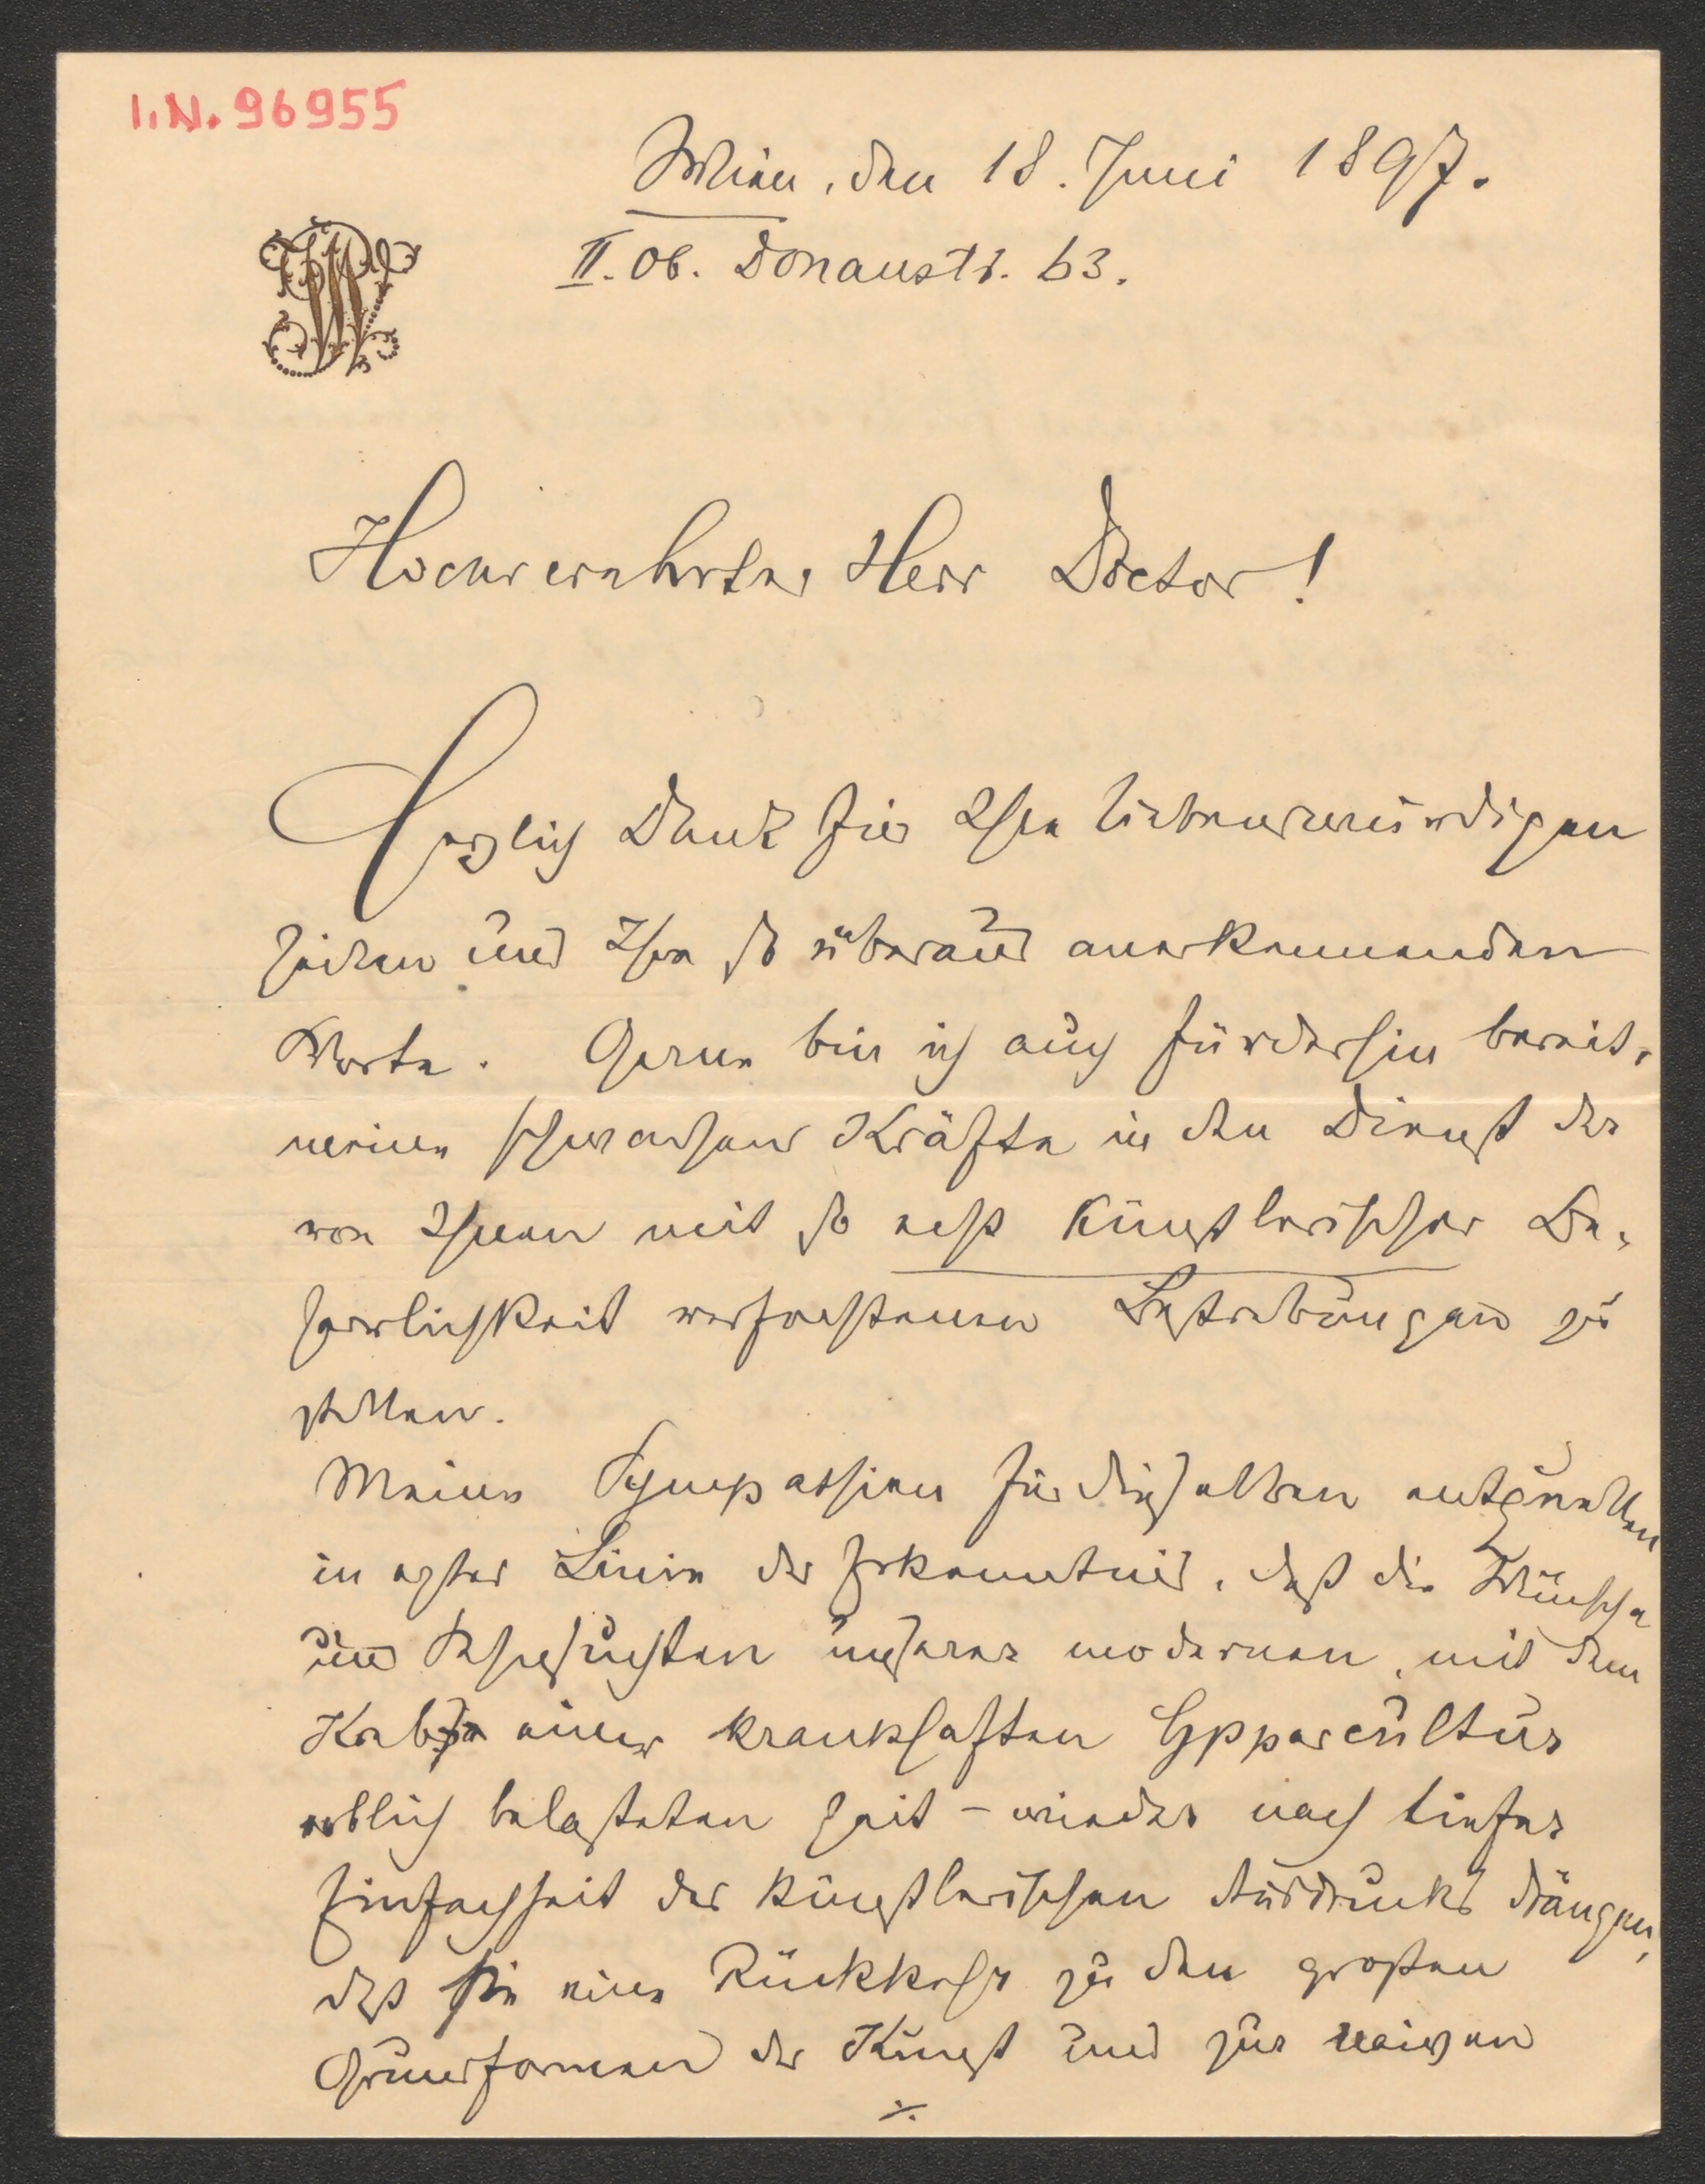 I.N. 96955
Wien, den 18. Juni 1897.
II. Ob. Donaustr. 63.
Hochverehrter Herr Doctor!
Herzlich Dank für Ihre liebenswürdigen
Zeilen und Ihre so überaus anerkennenden
Worte. Gerne bin ich auch fürderhin bereit,
meine schwachen Kräfte in den Dienst der
von Ihnen mit so echt künstlerischer Be-
harrlichkeit verfochtenen Bestrebungen zu
stellen.
Meine Sympathien für dieselben entquellen
in erster Linie der Erkenntnis, daß die Wünsche
und Sehnsuchten unserer modernen, mit dem
Krebse einer krankhaften Hypercultur
erblich belasteten Zeit – wieder nach tiefer
Einfachheit des künstlerischen Ausdrucks drängen,
daß sie eine Rückkehr zu den großen
Grundformen der Kunst und zur naiven
./.